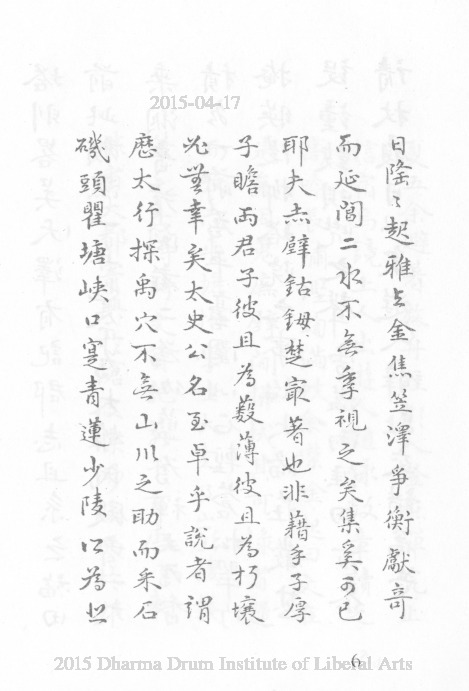 2015-04-17
日隆〻起雅与金焦笠澤爭衡獻奇
而延閭二水不無季視之矣集奚可已
耶夫赤壁鈷鉧楚冣著也非藉手子厚
子瞻兩君子彼且為藪薄彼且為朽壤
無幸矣太史公名至卓乎說者謂
歷太行探禹穴不無山川之助而采石
磯頭瞿塘峽口寔青蓮少陵以為
6
2015 Dharma Drum Institute of Liberal Arts